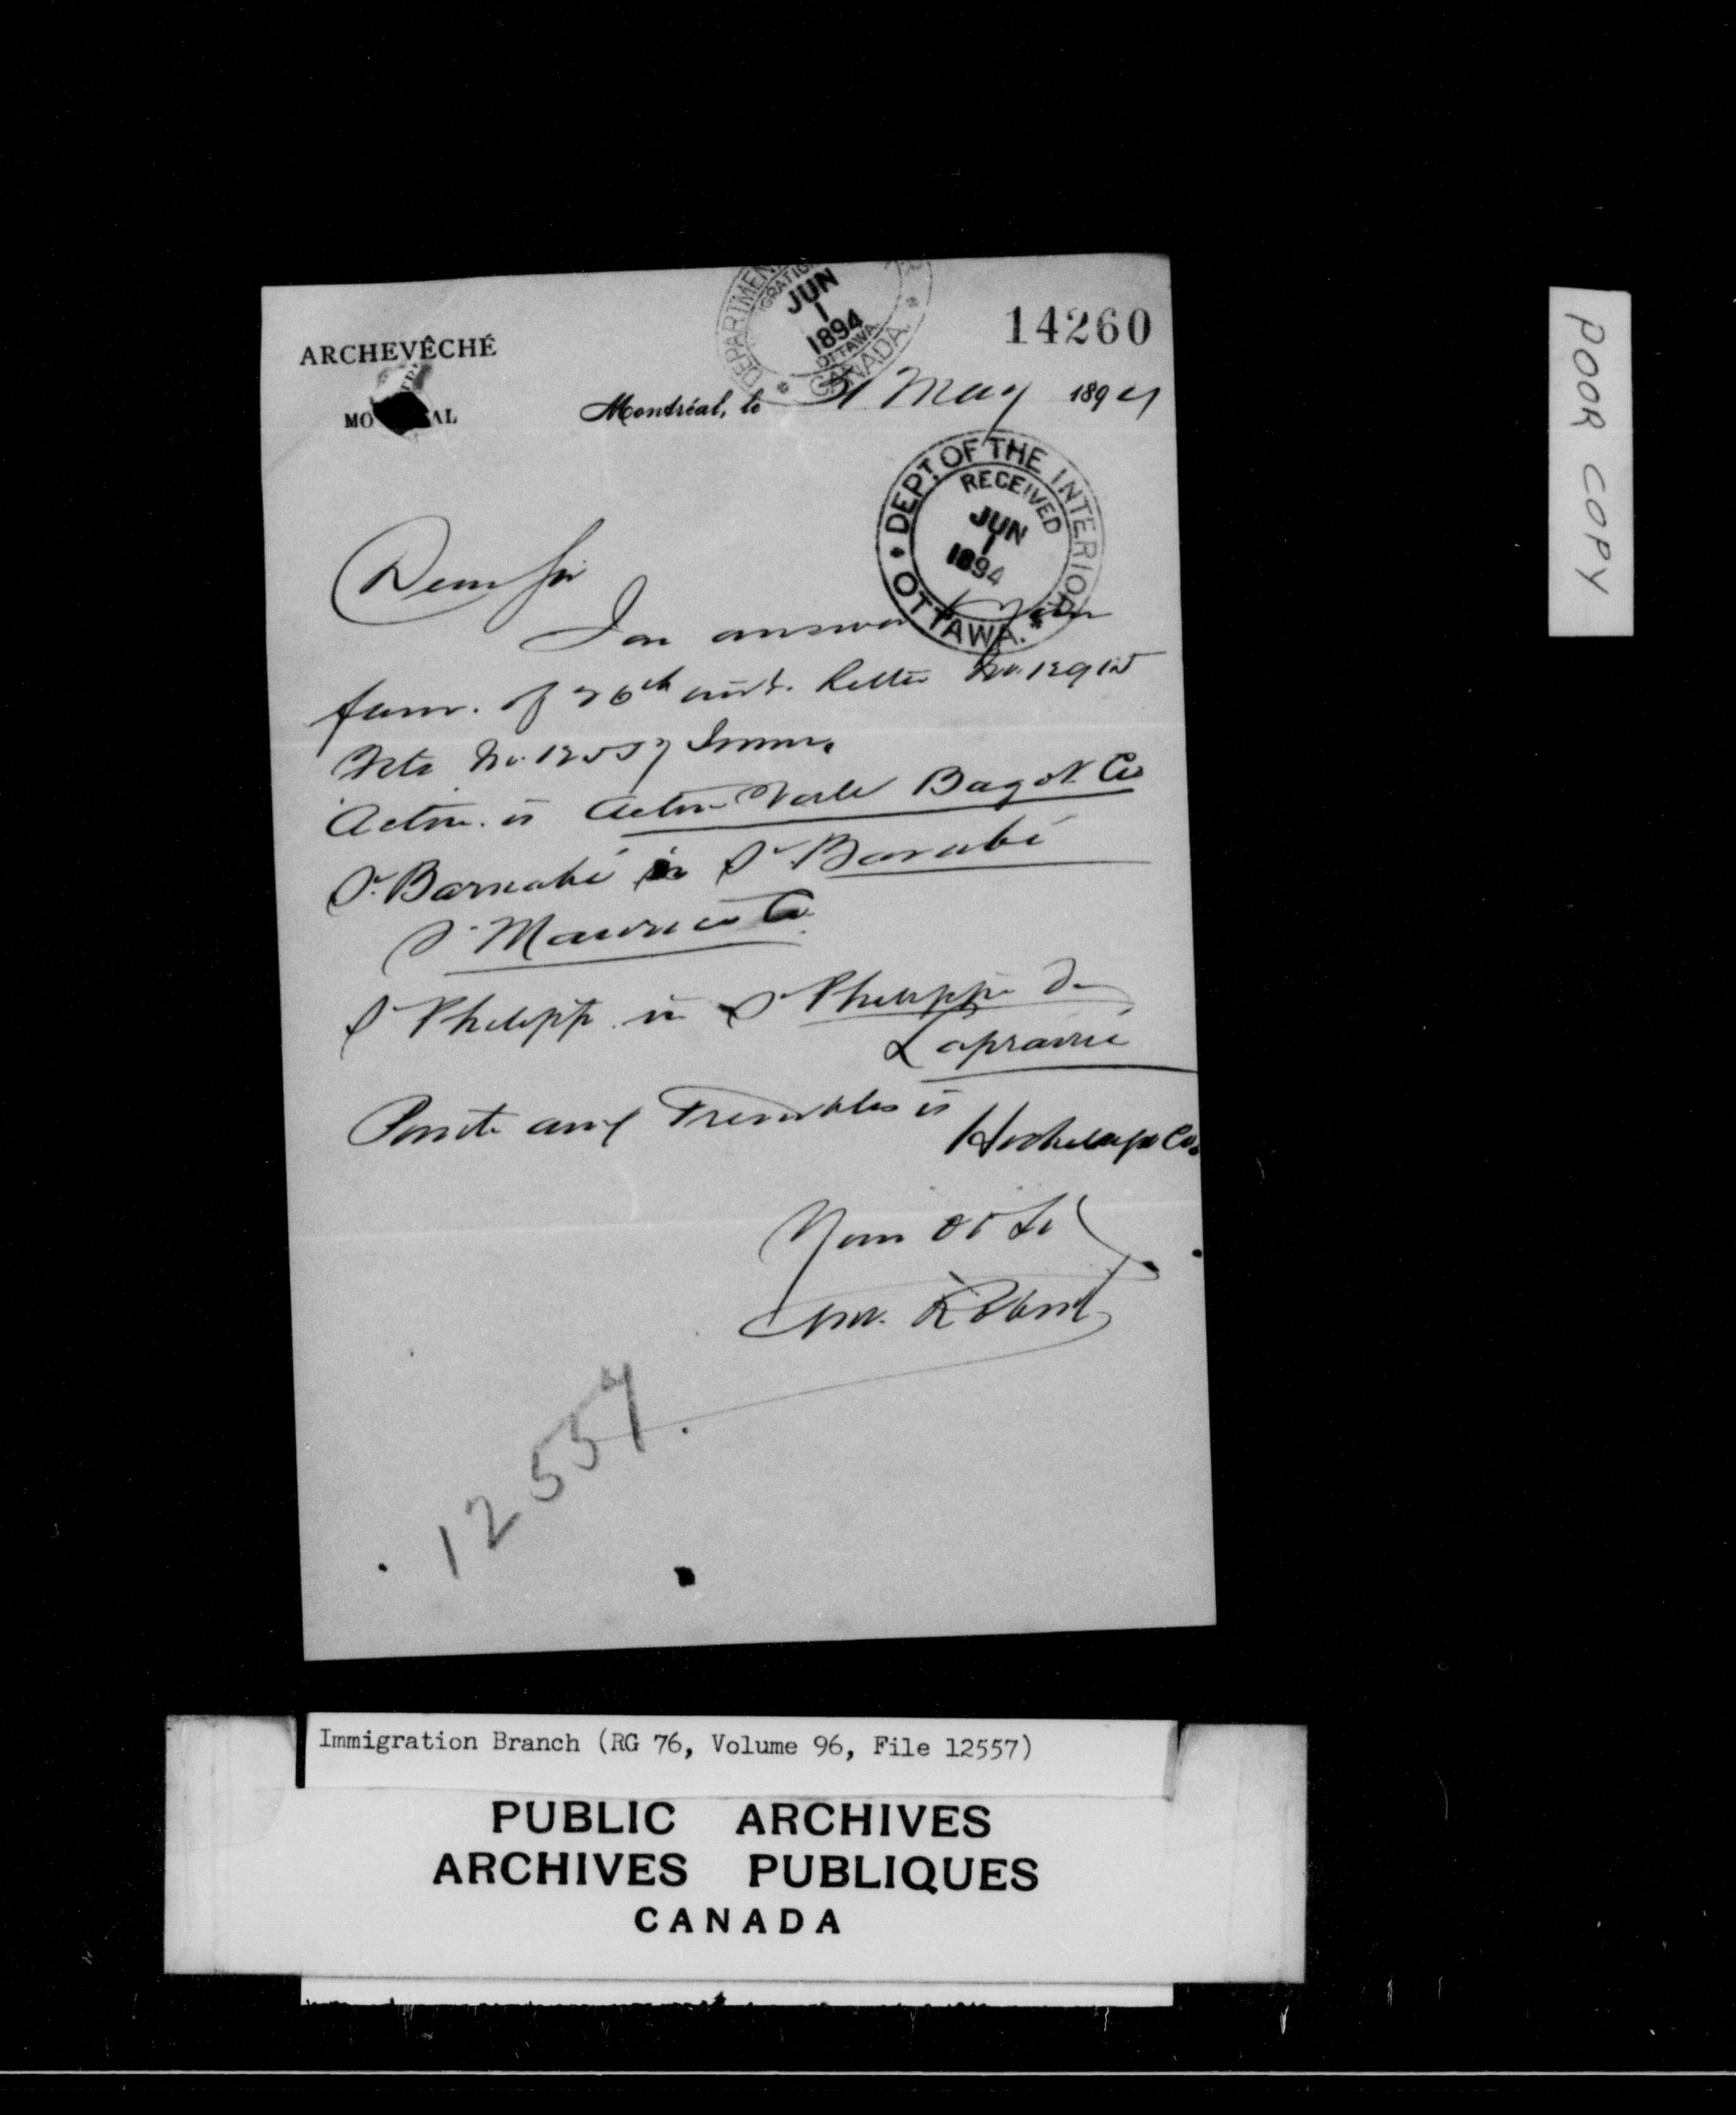 DEPARTMENT
JUN
1
1894
OTTAWA.
CANADA.
14260
ARCHEVÊCHÉ
MO AL
Montréal, le 31 May 1894
DEPT. OF THE INTERIOR
RECEIVED
JUN
1
1894
OTTAWA.
Dear Sir
In answer to your
favr. of 26th inst. Letter No. 12915
No. 12557 Immn.
Acton is Acton Vale Bagot Co
St. Barnabé is St Barnabé
St Maurice Co.
St Philippe is St Philippe de
Laprairie
Pointe aux Trembles is
Hochelaga Co.
12557
POOR COPY
Immigration Branch (RG 76, Volume 96, File 12557)
PUBLIC ARCHIVES
ARCHIVES PUBLIQUES
CANADA